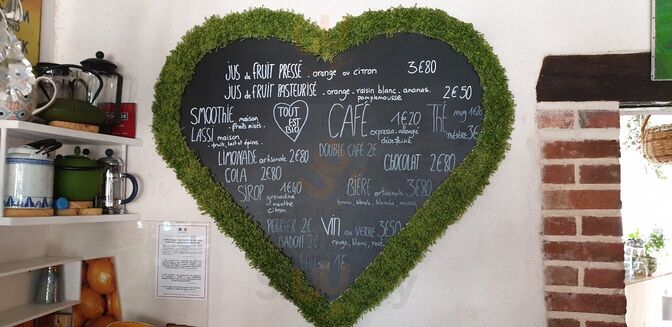 JUS de FRUIT PRESSÉ . orange ou citron 3€80
JUS de FRUIT PASTEURISÉ . orange . raisin blanc . ananas . pamplemousse 2€50
SMOOTHIE maison
. fruits mixés .
LASSI maison
. fruit, lait et épices .
2€80
TOUT
EST
BIO
CAFÉ 1€20
expresso . allongé
décaféiné
DOUBLE CAFÉ 2€
THÉ mug 1€20
théière 3€
LIMONADE artisanale 2€80
COLA 2€80
CHOCOLAT 2€80
SIROP 1€40
grenadine
menthe
citron
BIÈRE artisanale 3€80
brune, blonde, blanche, rousse
PERRIER 2€
BADOIT 2€
VIN au VERRE 3€50
rouge, blanc, rosé
1€